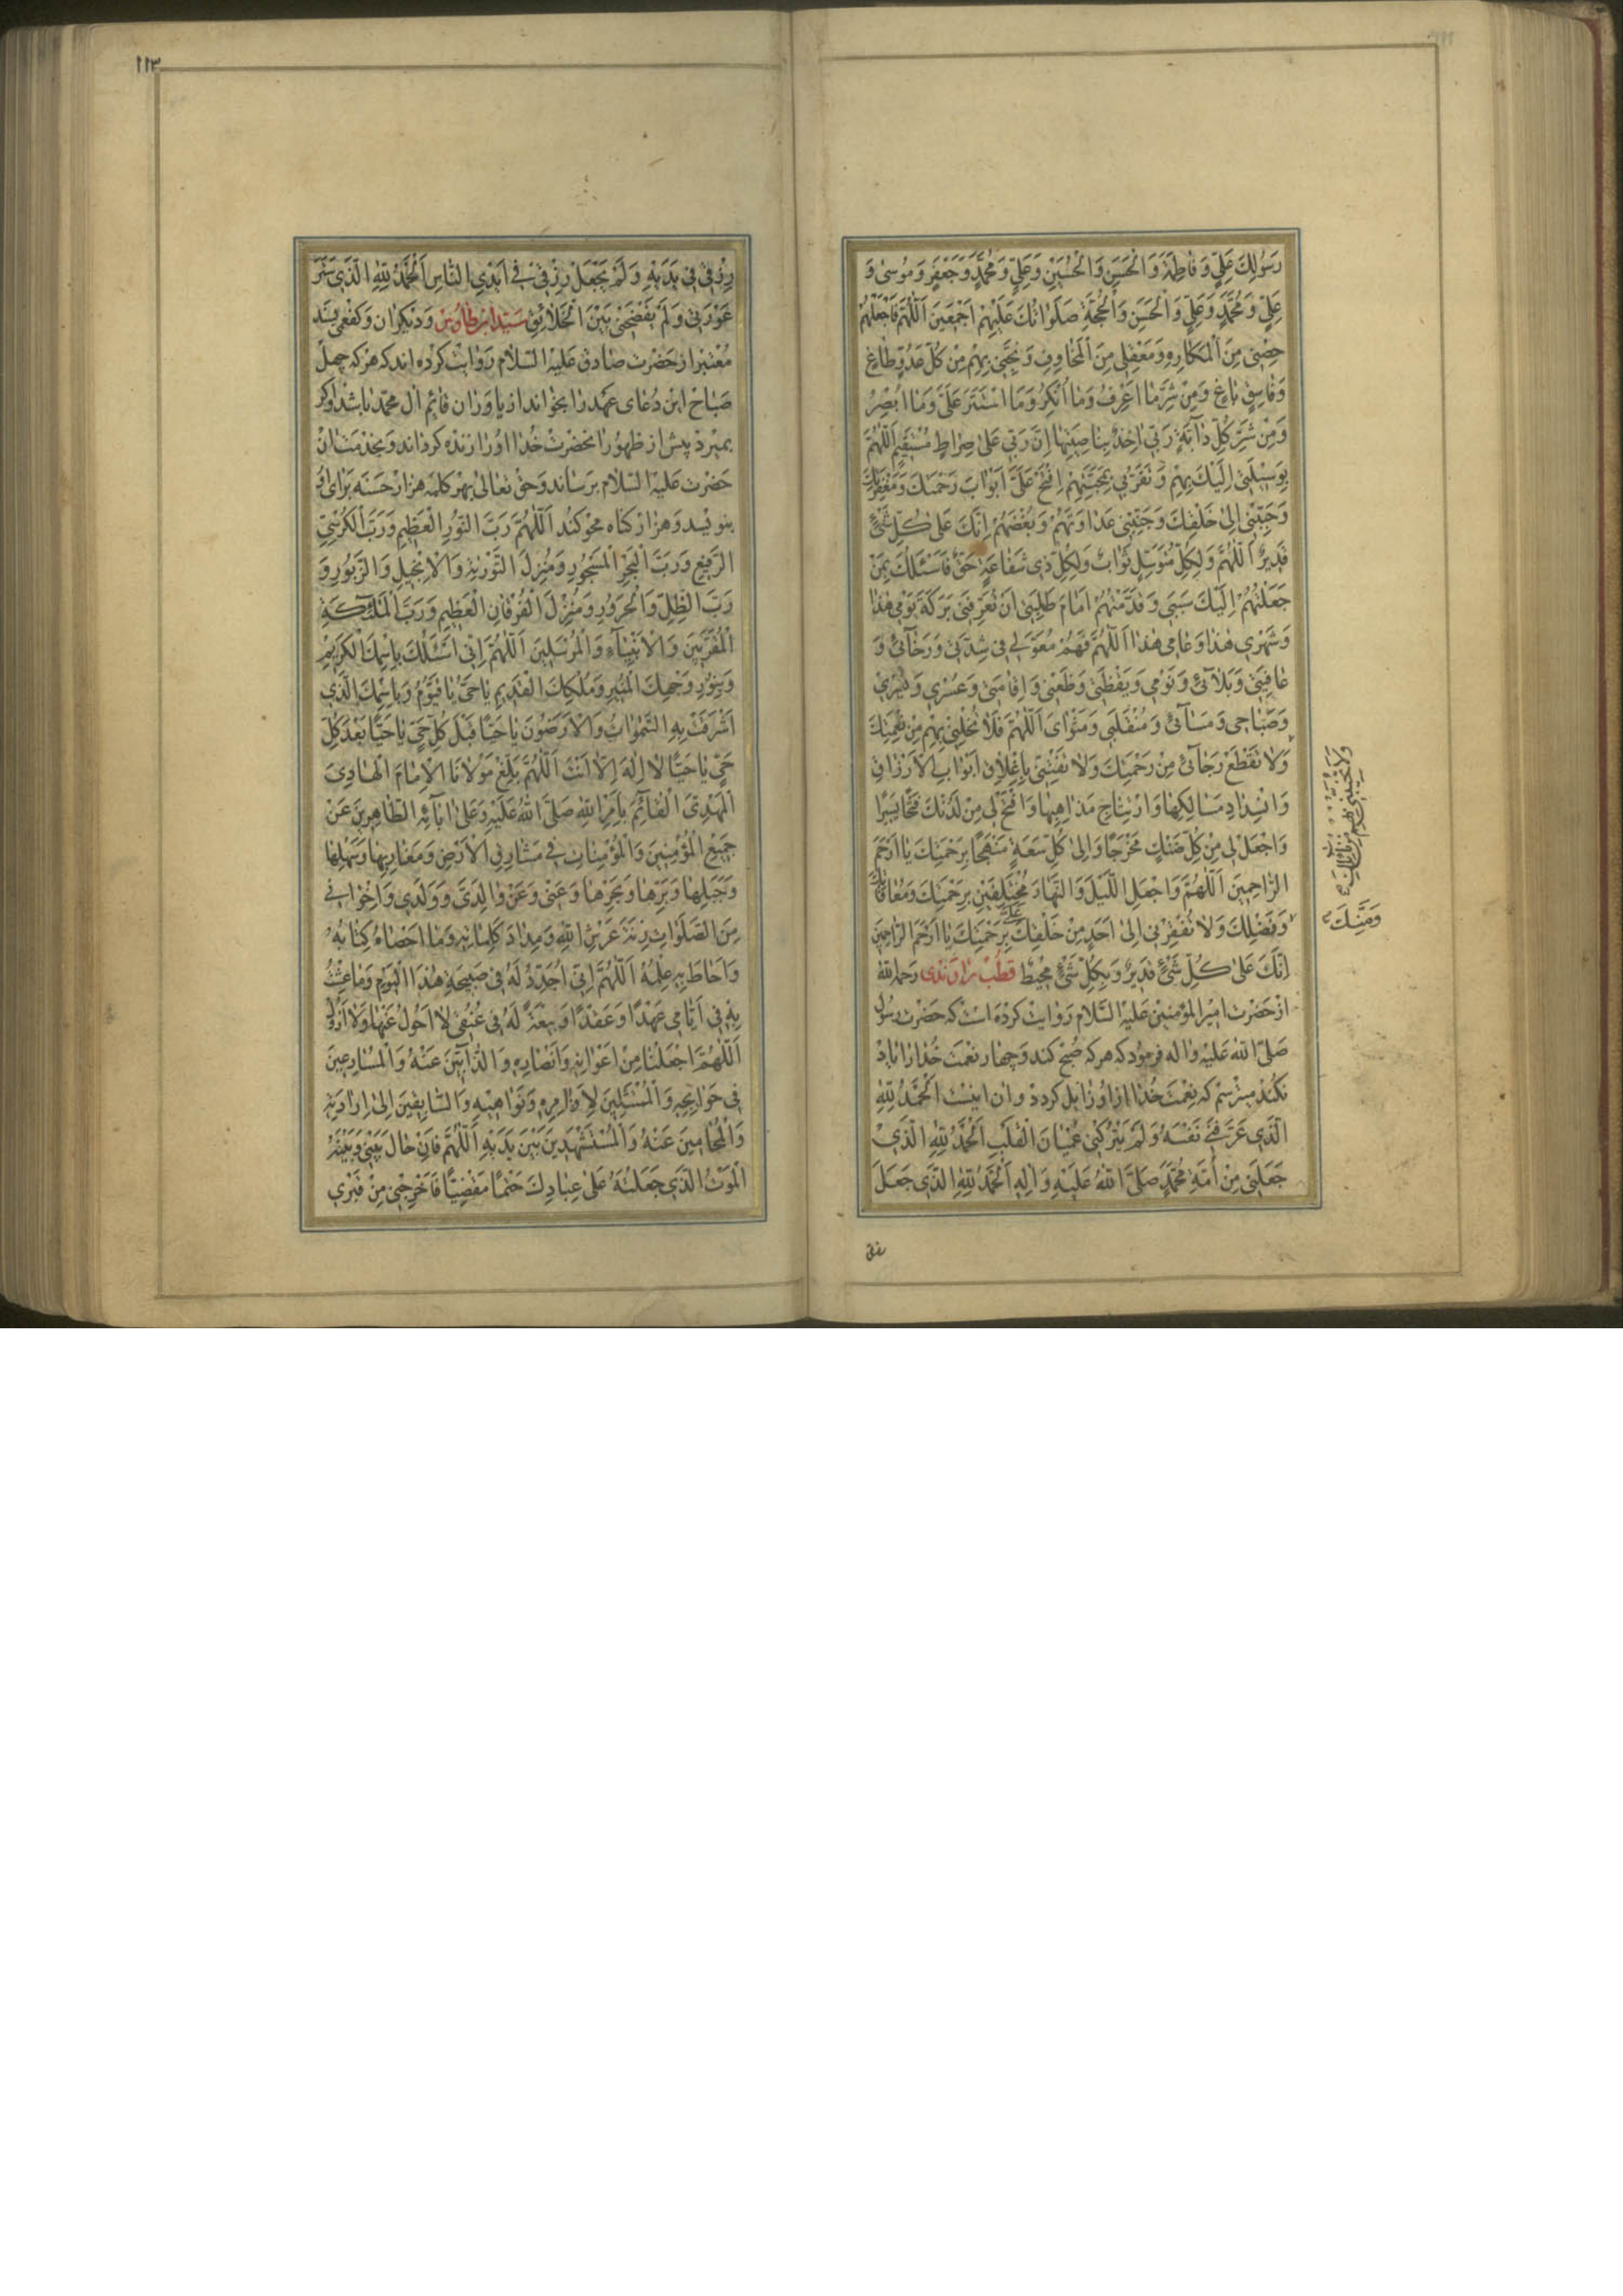 رَسُولِكَ عَلِيٍّ وَفَاطِمَةَ وَالْحَسَنِ وَالْحُسَيْنِ وَعَلِيٍّ وَمُحَمَّدٍ وَجَعْفَرٍ وَمُوسىٰ وَ
عَلِيٍّ وَمُحَمَّدٍ وَعَلِيٍّ وَالْحَسَنِ وَالْحُجَّةِ صَلَوٰاتُكَ عَلَيْهِمْ اَجْمَعِينَ اَللّٰهُمَّ فَاجْعَلْهُمْ
حِصْنِى مِنَ الْمَكَارِهِ وَمَعْقِلِى مِنَ الْمَخَاوِفِ وَنَجِّنِى بِهِمْ مِنْ كُلِّ عَدُوٍّ طٰاغٍ
وَفَاسِقٍ بٰاغٍ وَمِنْ شَرِّ مٰا اَعْرِفُ وَمٰا اُنْكِرُ وَمَا اسْتَتَرَ عَلَىَّ وَمٰا اُبْصِرُ
وَمِنْ شَرِّ كُلِّ دٰابَّةٍ رَبّى اٰخِذٌ بِنٰاصِيَتِهٰا اِنَّ رَبّى عَلىٰ صِرٰاطٍ مُسْتَقِيمٍ اَللّٰهُمَّ
بِوَسِيلَتِى اِلَيْكَ بِهِمْ وَتَقَرُّبِى بِمَحَبَّتِهِمْ اِفْتَحْ عَلَىَّ اَبْوٰابَ رَحْمَتِكَ وَمَغْفِرَتِكَ
وَحَبِّبْنِى اِلىٰ خَلْقِكَ وَجَنِّبْنِى عَدٰاوَتَهُمْ وَبُغْضَهُمْ اِنَّكَ عَلىٰ كُلِّ شَىْءٍ
قَدِيرٌ اَللّٰهُمَّ وَلِكُلِّ مُتَوَسِّلٍ ثَوٰابٌ وَلِكُلِّ ذِى شَفٰاعَةٍ حَقٌّ فَاَسْئَلُكَ بِمَنْ
جَعَلْتُهُمْ اِلَيْكَ سَبَبِى وَقَدَّمْتُهُمْ اَمٰامَ طَلِبَتِى اَنْ تُعَرِّفَنِى بَرَكَةَ يَوْمِى هٰذٰا
وَشَهْرِى هٰذٰا وَعٰامِى هٰذٰا اَللّٰهُمَّ فَهُمْ مُعَوَّلِى فِى شِدَّتِى وَرَخٰآئِى وَ
عٰافِيَتِى وَبَلٰآئِى وَنَوْمِى وَيَقْظَتِى وَظَعْنِى وَاِقٰامَتِى وَعُسْرِى وَيُسْرِى
وَصَبٰاحِى وَمَسٰآئِى وَمُنْقَلَبِى وَمَثْوٰاىَ اَللّٰهُمَّ فَلٰا تُخْلِنِى بِهِمْ مِنْ نِعْمَتِكَ
وَلٰا تَقْطَعْ رَجٰآئِى مِنْ رَحْمَتِكَ وَلٰا تَفْتِنِّى بِاِغْلٰاقِ اَبْوٰابِ الْاَرْزٰاقِ
وَانْسِدٰادِ مَسٰالِكِهٰا وَارْتِتٰاجِ مَذٰاهِبِهٰا وَافْتَحْ لِى مِنْ لَدُنْكَ فَتْحًا يَسِيرًا
وَاجْعَلْ لِى مِنْ كُلِّ ضَنْكٍ مَخْرَجًا وَاِلىٰ كُلِّ سَعَةٍ مَنْهَجًا بِرَحْمَتِكَ يٰا اَرْحَمَ
الرّٰاحِمِينَ اَللّٰهُمَّ وَاجْعَلِ اللَّيْلَ وَالنَّهٰارَ مُخْتَلِفَيْنِ عَلَىَّ بِرَحْمَتِكَ وَمُعٰافٰاتِكَ
وَفَضْلِكَ وَلٰا تُفْقِرْنِى اِلىٰ اَحَدٍ مِنْ خَلْقِكَ بِرَحْمَتِكَ يٰا اَرْحَمَ الرّٰاحِمِينَ
اِنَّكَ عَلىٰ كُلِّ شَىْءٍ قَدِيرٌ وَبِكُلِّ شَىْءٍ مُحِيطٌ قُطْب رٰاوَنْدى رَحمه الله
از حَضْرت اميرالمؤمنين عَلَيْهِ السَّلام رَوٰايت كرده است كه حَضْرت رسُول
صَلَّى اللّٰهُ عَلَيْهِ وَاٰلِه فرمُود كه هر كه صُبح كند وَچهار نعْمت خُدٰا رٰا يٰاد
نكُند ميترسَم كه نعْمت خُدٰا از اُو زٰايل گردد وان اينست اَلْحَمْدُ لِلّٰهِ
الَّذِى عَرَّفَنِى نَفْسَهُ وَلَمْ يَتْرُكْنِى عُمْيَانَ الْقَلْبِ اَلْحَمْدُ لِلّٰهِ الَّذِى
جَعَلَنِى مِنْ اُمَّةِ مُحَمَّدٍ صَلَّى اللّٰهُ عَلَيْهِ وَاٰلِهِ اَلْحَمْدُ لِلّٰهِ الَّذِى جَعَلَ
وَمَنِّكَ
١١٣
رِزْقِى فِى يَدَيْهِ وَلَمْ يَجْعَلْ رِزْقِى فِى اَيْدِى النّٰاسِ اَلْحَمْدُ لِلّٰهِ الَّذِى سَتَرَ
عَوْرَتِى وَلَمْ يَفْضَحْنِى بَيْنَ الْخَلٰائِقِ سَيّد ابن طٰاوس وَديگران وَكفعمى بسَند
مُعْتبر از حَضْرت صٰادق عَلَيْهِ السَّلام رَوٰايت كرده اند كه هَر كه چهل
صَبٰاح اين دُعٰاى عَهد رٰا بخوٰاند از يٰاوَرٰان قٰائم اٰل محمّد بٰاشد وَاگر
بميرد پيش از ظهُور انحضْرت خُدٰا اُو رٰا زنده گرداند وَبخدمت ان
حَضرت عَلَيْهِ السَّلام برَساند وَحق تعٰالىٰ بهر كلمه هزار حَسَنه برٰاى او
بنويسد وَهزٰار گنٰاه محو كند اَللّٰهُمَّ رَبَّ النُّورِ الْعَظِيمِ وَرَبَّ الْكُرْسِىِّ
الرَّفِيعِ وَرَبَّ الْبَحْرِ الْمَسْجُورِ وَمُنْزِلَ التَّوْرٰيةِ وَالْاِنْجِيلِ وَالزَّبُورِ وَ
رَبَّ الظِّلِّ وَالْحَرُورِ وَمُنْزِلَ الْفُرْقٰانِ الْعَظِيمِ وَرَبَّ الْمَلٰٓئِكَةِ
الْمُقَرَّبِينَ وَالْاَنْبِيٰآءِ وَالْمُرْسَلِينَ اَللّٰهُمَّ اِنِّى اَسْئَلُكَ بِاسْمِكَ الْكَرِيمِ
وَبِنُورِ وَجْهِكَ الْمُنِيرِ وَمُلْكِكَ الْقَدِيمِ يٰا حَىُّ يٰا قَيُّومُ وَبِاسْمِكَ الَّذِى
اَشْرَقَتْ بِهِ السَّمٰوٰاتُ وَالْاَرَضُونَ يٰا حَيًّا قَبْلَ كُلِّ حَىٍّ يٰا حَيًّا بَعْدَ كُلِّ
حَىٍّ يٰا حَيًّا لٰا اِلٰهَ اِلّٰا اَنْتَ اَللّٰهُمَّ بَلِّغْ مَوْلٰانَا الْاِمٰامَ الْهٰادِىَ
الْمَهْدِىَّ الْقٰآئِمَ بِاَمْرِ اللّٰهِ صَلَّى اللّٰهُ عَلَيْهِ وَعَلىٰ اٰبٰآئِهِ الطّٰاهِرِينَ عَنْ
جَمِيعِ الْمُؤْمِنِينَ وَالْمُؤْمِنٰاتِ فِى مَشٰارِقِ الْاَرْضِ وَمَغٰارِبِهٰا وَسَهْلِهٰا
وَجَبَلِهٰا وَبَرِّهٰا وَبَحْرِهٰا وَعَنِّى وَعَنْ وٰالِدَىَّ وَوَلَدِى وَاِخْوٰانِى
مِنَ الصَّلَوٰاتِ زِنَةَ عَرْشِ اللّٰهِ وَمِدٰادَ كَلِمٰاتِهِ وَمٰا اَحْصٰاهُ كِتٰابُهُ
وَاَحٰاطَ بِهِ عِلْمُهُ اَللّٰهُمَّ اِنِّى اُجَدِّدُ لَهُ فِى صَبِيحَةِ هٰذَا الْيَوْمِ وَمٰا عِشْتُ
بِهِ فِى اَيّٰامِى عَهْدًا وَعَقْدًا وَبَيْعَةً لَهُ فِى عُنُقِى لٰا اَحُولُ عَنْهٰا وَلٰا اَزُولُ
اَللّٰهُمَّ اجْعَلْنٰا مِنْ اَعْوٰانِهِ وَاَنْصٰارِهِ وَالذّٰآبِّينَ عَنْهُ وَالْمُسٰارِعِينَ
فِى حَوٰائِجِهِ وَالْمُمْتَثِلِينَ لِاَوٰامِرِهِ وَنَوٰاهِيهِ وَالسّٰابِقِينَ اِلىٰ اِرٰادَتِهِ
وَالْمُحٰامِينَ عَنْهُ وَالْمُسْتَشْهَدِينَ بَيْنَ يَدَيْهِ اَللّٰهُمَّ فَاِنْ حٰالَ بَيْنِى وَبَيْنَهُ
الْمَوْتُ الَّذِى جَعَلْتَهُ عَلىٰ عِبٰادِكَ حَتْمًا مَقْضِيًّا فَاَخْرِجْنِى مِنْ قَبْرِى